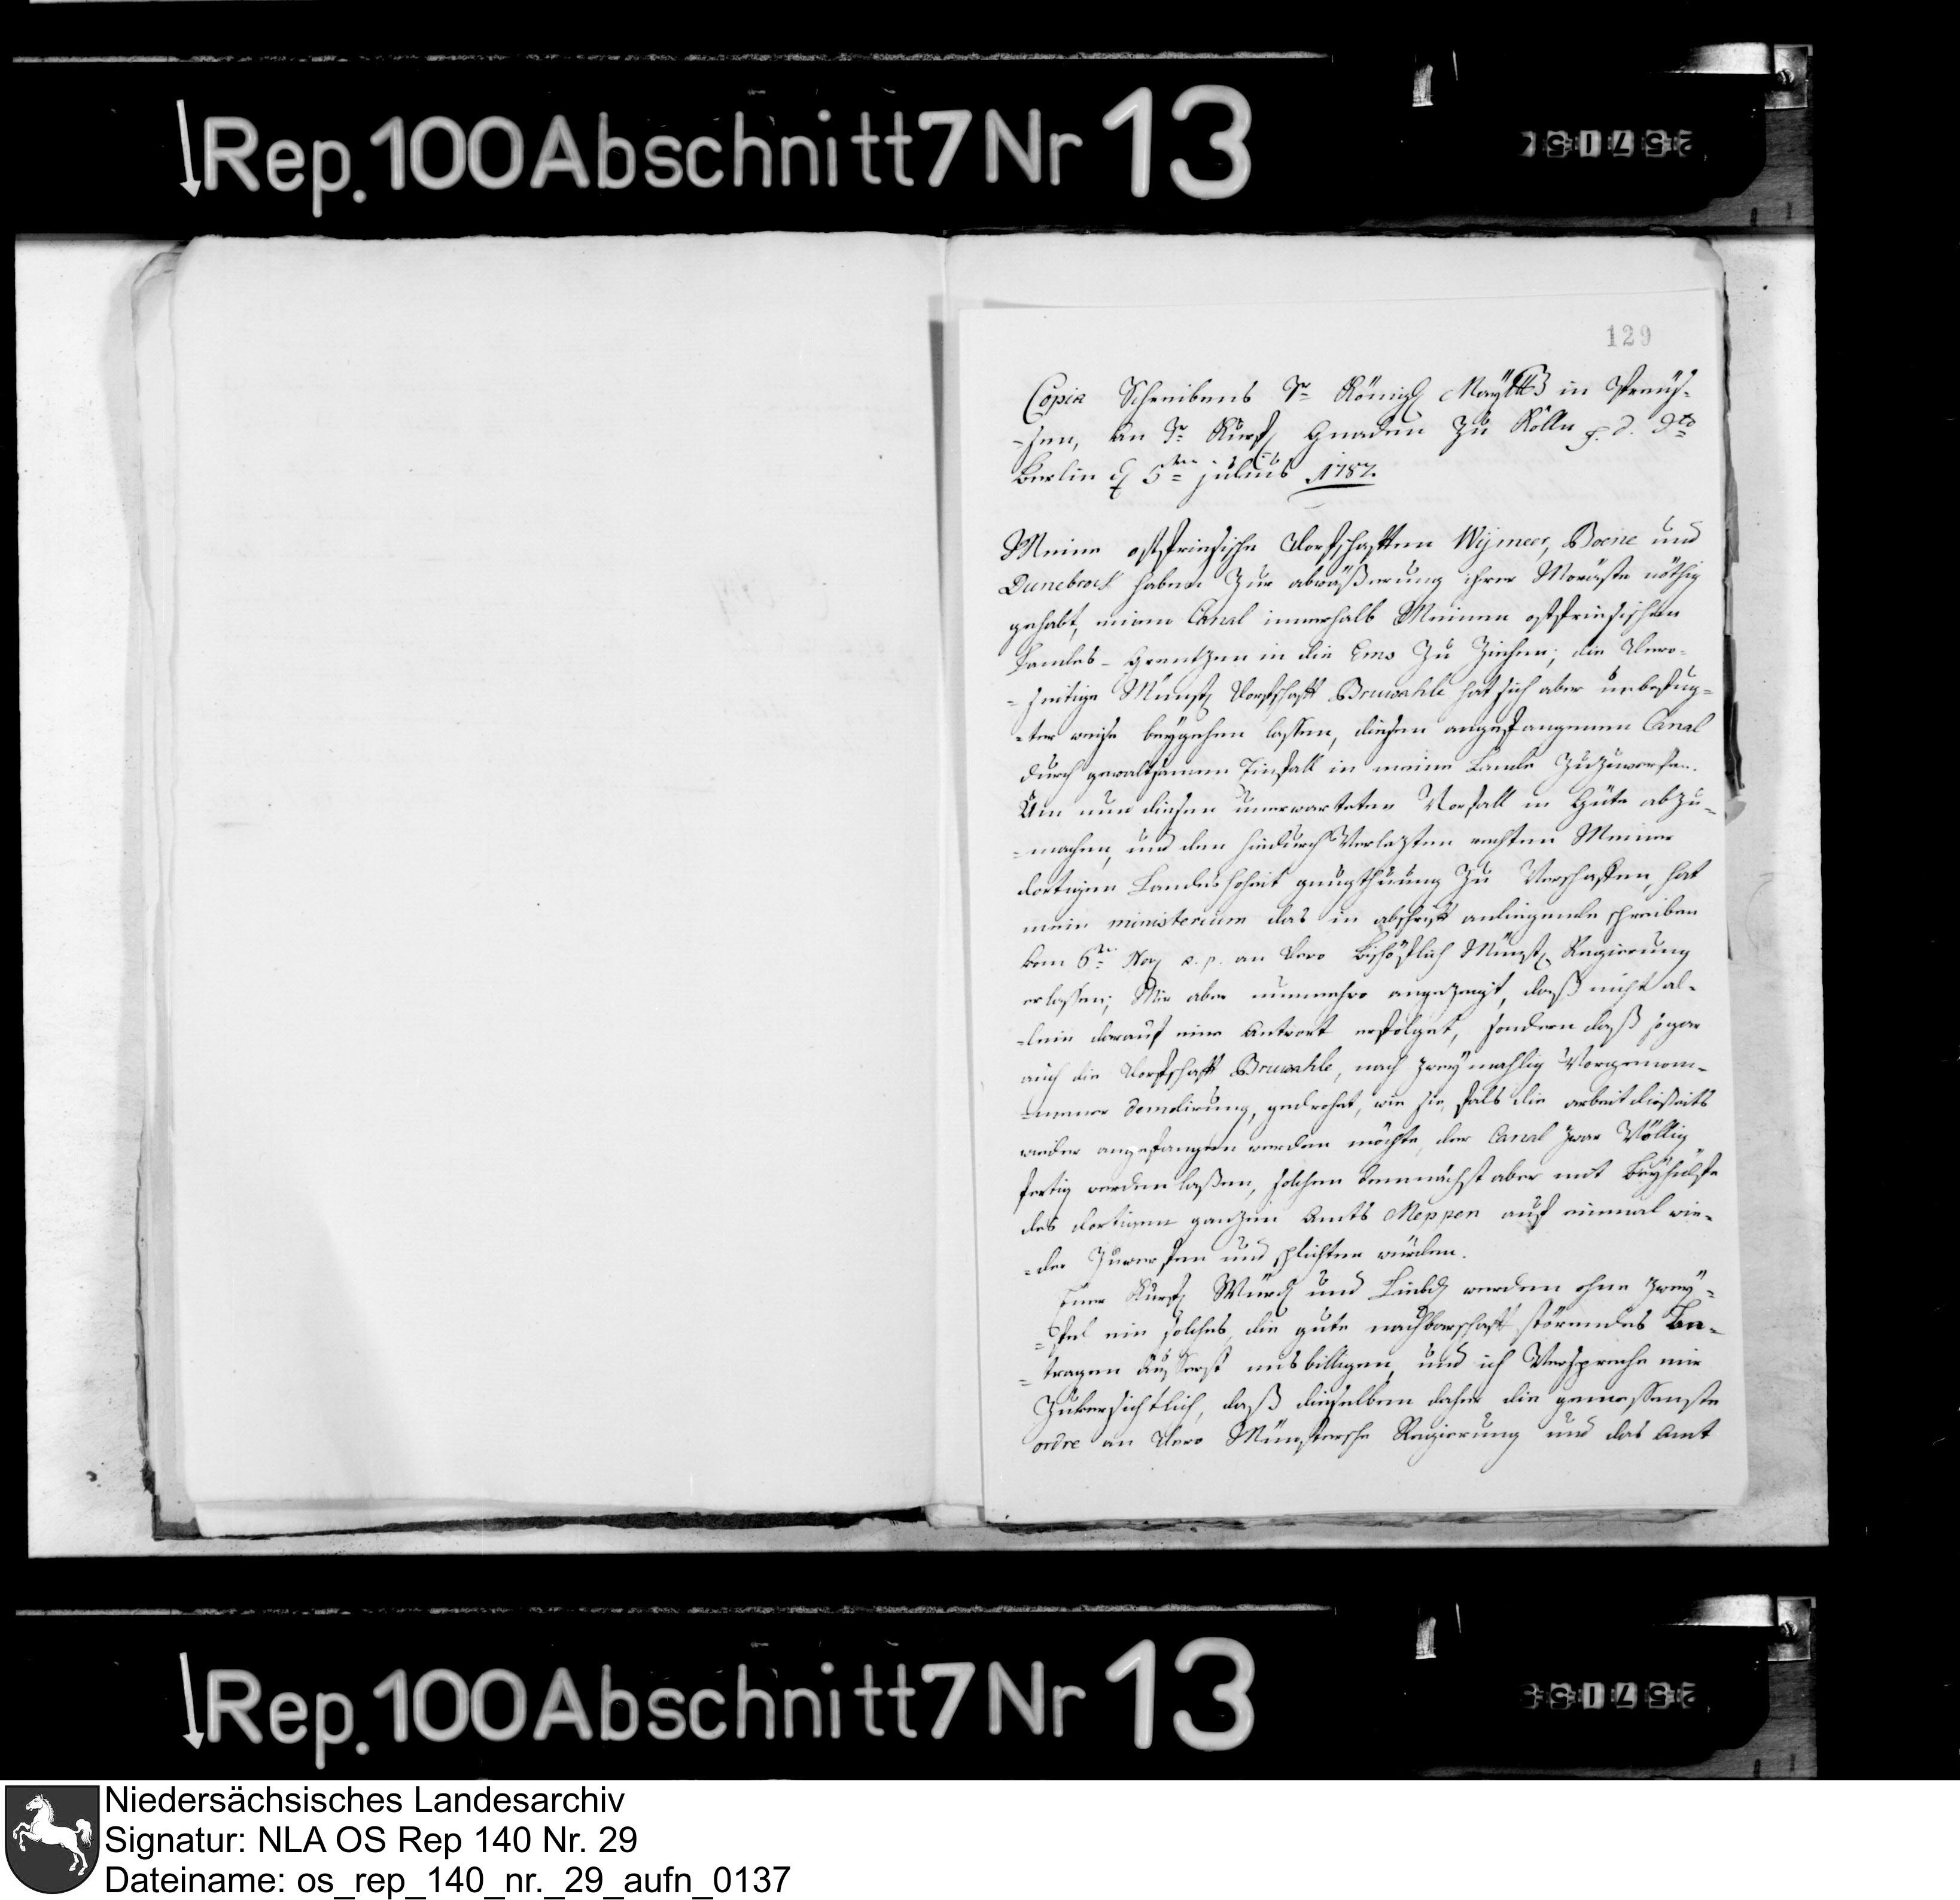 Rep. 100 Abschnitt 7 Nr 13
129
Copia Schreibens Sr. Königl Maytts in Preuß-
-sen, An Sr. Kurf. Gnaden zu Kölln dto
Berlin d 5ten julius 1787.
Meine ostfriesische Dorfschafften Wijmeer, Boene und
Dunebrock haben zur abwäßerung ihrer Moräste nöthig
gehabt, einen Canal innerhalb Meinen ostfriesischen
Landes-Grentzen in die Ems zu ziehen; die Dero-
-seitige Münst. Dorfschafft Bruwahle hat sich aber unbefug-
-ter weise beygehen lassen, diesen angefangenen Canal
durch gewaltsamen Einfall in meine Lande zuzuwerfen.
Um nun diesen unerwarteten Vorfall in Güte abzu-
-machen, und den hiedurch Verlezten rechten Meiner
dortigen Landeshoheit genugthuung zu Verschaffen, hat
mein ministerium das in abschrift anliegende schreiben
vom 6ten Nov. a. p. an Dero Bischöflich Münst. Regierung
erlassen; Mir aber nunmehro angezeigt, daß nicht al-
-lein darauf eine Antwort erfolget, sondern daß sogar
auch die Dorfschafft Bruwahle, nach zweymahlig Vorgenom-
-mener demolirung, gedrohet, wie sie, fals die arbeit diesseits
wieder angefangen werden möchte, der Canal zwar Völlig
fertig werden laßen, solchen demnächst aber mit Beyhülfe
des dortigen ganzen Amts Meppen auf einmal wie-
-der Zuwerfen und schlichten würden.
Euer Kurf. Würd und Liebd werden ohne Zwey-
-fel ein solches, die gute nachbarschafft störendes Be-
-tragen äusserst misbilligen, und ich Verspreche mir
Zuversichtlich, daß dieselben daher die gemessenste
ordre an Dero Münstersche Regierung und das Amt
Rep. 100 Abschnitt 7 Nr 13
Niedersächsisches Landesarchiv
Signatur: NLA OS Rep 140 Nr. 29
Dateiname: os_rep_140_nr._29_aufn_0137